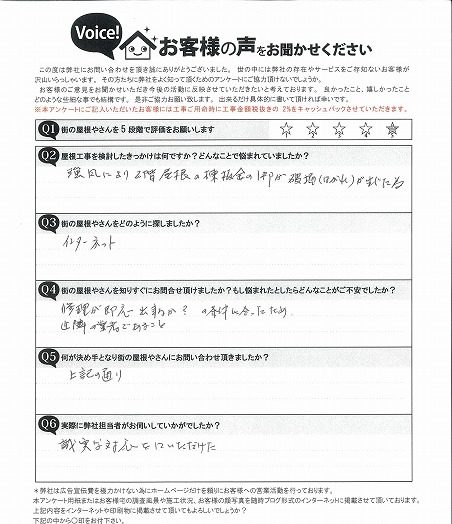 Voice!
お客様の声をお聞かせください
この度は弊社にお問い合わせを頂き誠にありがとうございました。 世の中には弊社の存在やサービスをご存知ないお客様が
沢山いらっしゃいます。 その方たちに弊社をよく知って頂くためのアンケートにご協力頂けないでしょうか。
お客様のご意見をお聞かせいただき今後の活動に反映させていただきたいと考えております。 良かったこと、嬉しかったこと
どのような些細な事でも結構です。 是非ご協力お願い致します。 出来るだけ具体的に書いて頂ければ幸いです。
※本アンケートにご記入いただいたお客様には工事ご用命時に工事金額税抜きの 2%をキャッシュバックさせていただきます。
Q1 街の屋根やさんを 5 段階で評価をお願いします ☆ ☆ ☆ ☆ ★
Q2 屋根工事を検討したきっかけは何ですか？どんなことで悩まれていましたか？
強風により 2階屋根の棟板金の1部が破損(はがれ)が生じた為
Q3 街の屋根やさんをどのように探しましたか？
インターネット
Q4 街の屋根やさんを知りすぐにお問合せ頂けましたか？もし悩まれたとしたらどんなことがご不安でしたか？
修理が即応出来るか？ の条件に合ったため
近隣の業者であること
Q5 何が決め手となり街の屋根やさんにお問い合わせ頂きましたか？
上記の通り
Q6 実際に弊社担当者がお伺いしていかがでしたか？
誠実な対応をしていただけた
＊弊社は広告宣伝費を極力かけない為にホームページだけを頼りにお客様への営業活動を行っております。
本アンケート用紙またはお客様宅の調査風景や施工状況、お客様の顔写真を随時ブログ形式のインターネットに掲載させて頂いております。
上記内容をインターネットや印刷物に掲載させて頂いてもよろしいでしょうか？
下記の中から〇印をお付下さい。